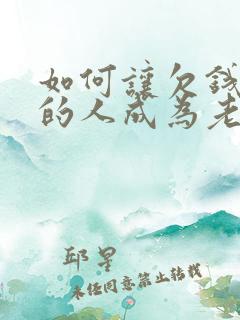 如何讓欠錢
的人成為老
邱星
未經同意禁止轉載